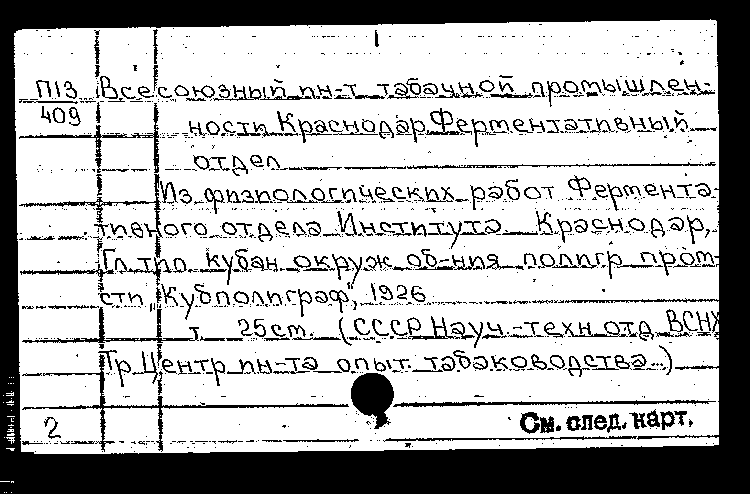 П13 Всесоюзный ин-т табачной промышлен-
409
ности Краснодар Ферментативный
отдел
Из физиологических работ Фермента-
тивного отдела Института Краснодар,
Гл. тип Кубан окруж об-ния полигр пром-
сти „Кубполиграф", 1926
т. 25 ст. (СССР Науч.-техн отд ВСНХ
Тр Центр ин-та опыт. табаководства.)
2 См. след. карт.